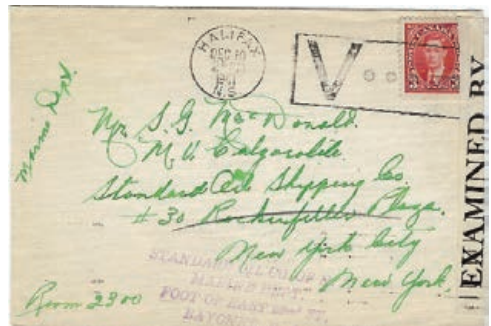 HALIFAX
DEC 10
1941
N.S.
V...
3 3
EXAMINED BY
Marine Dept.
Mr. S. G. MacDonald.
M. V. Calgarolite.
Standard Oil Shipping Co.
#30 Rockerfeller Plaza.
New York City
New York.
Room 2300
STANDARD OIL CO. OF N
MARINE DEPT.
FOOT OF EAST 22nd ST.
BAYONNE